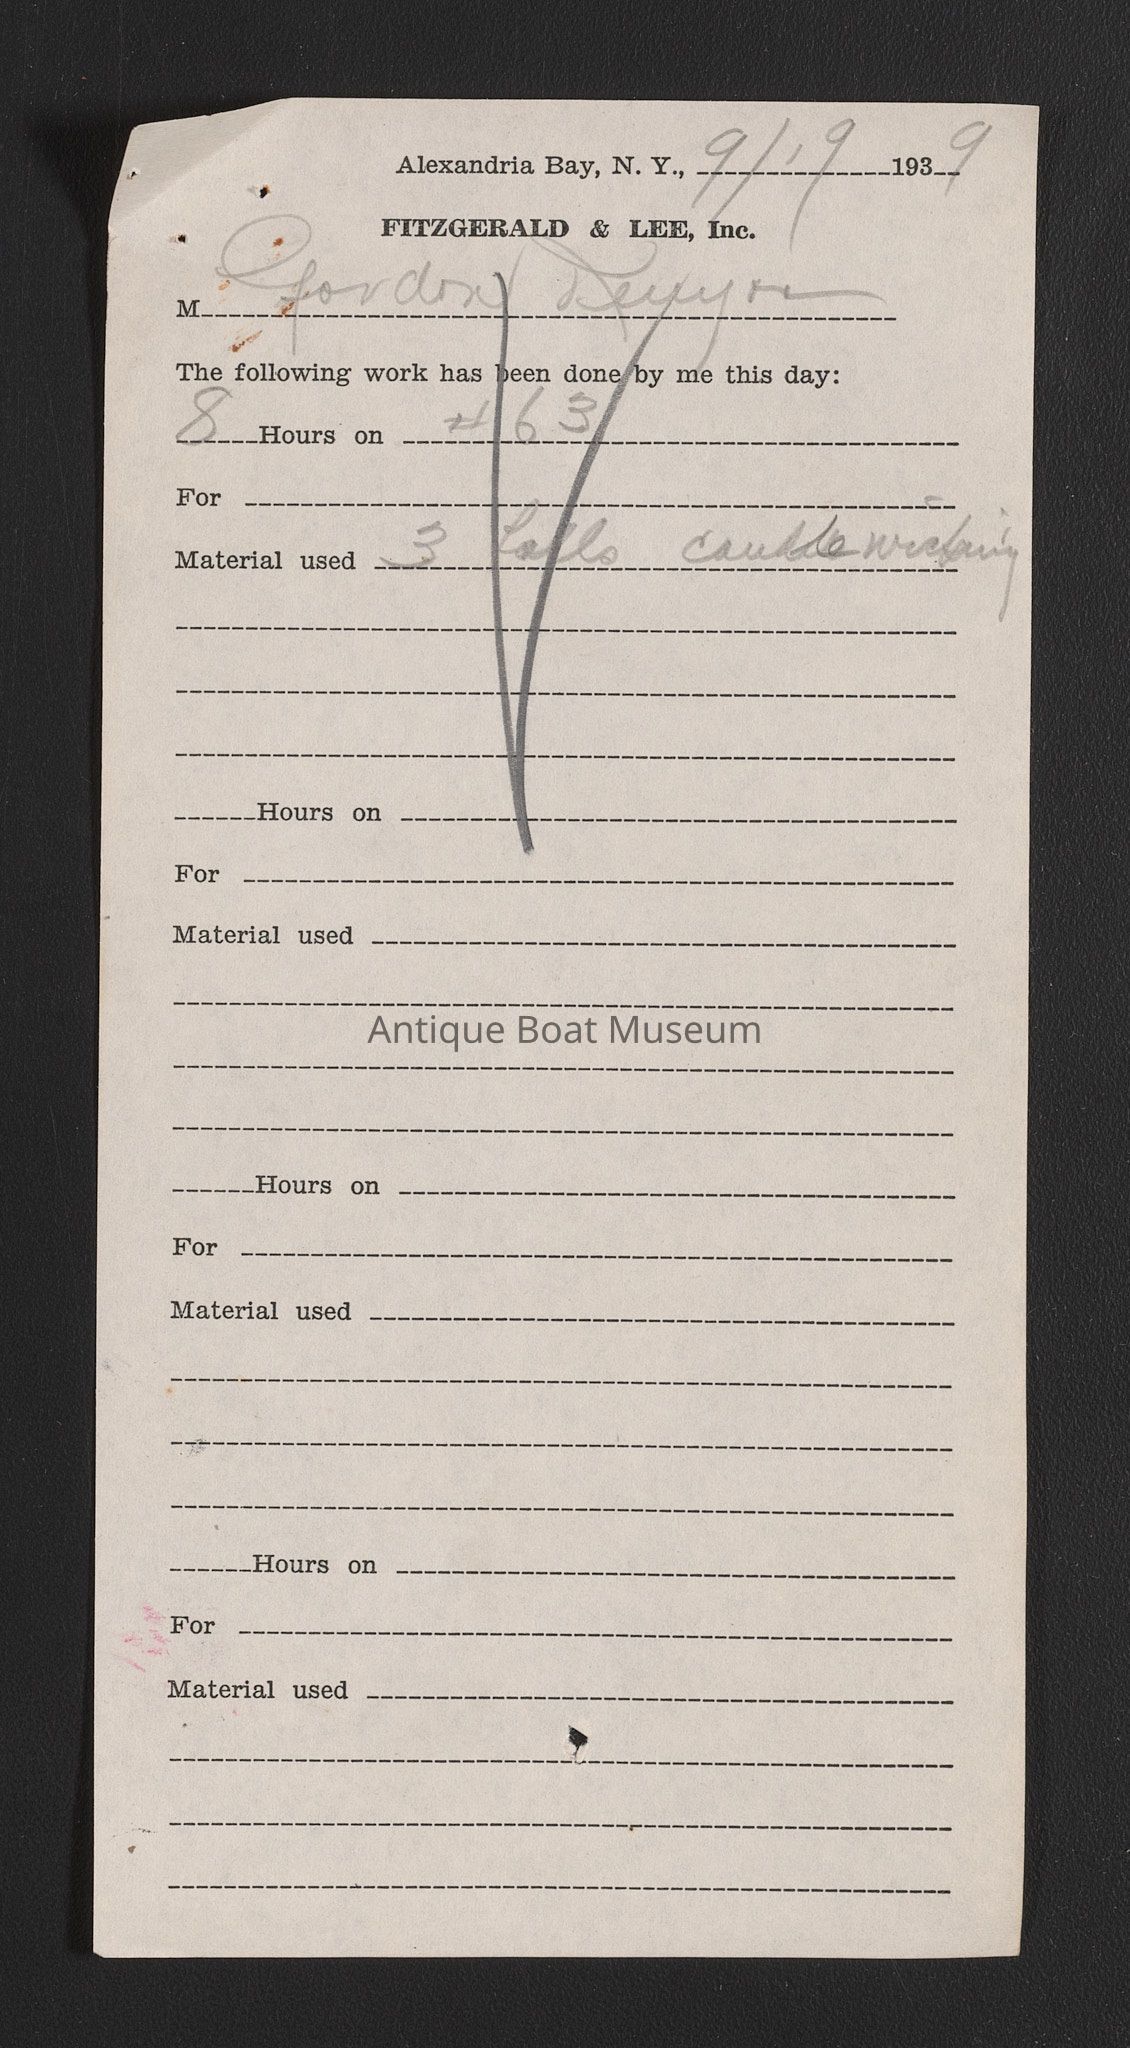 Alexandria Bay, N. Y., 9/19 1939
FITZGERALD & LEE, Inc.
M Gordon Kenyon
The following work has been done by me this day:
8 Hours on #63
For
Material used 3 balls candle wicking
Hours on
For
Material used
Antique Boat Museum
Hours on
For
Material used
Hours on
For
Material used